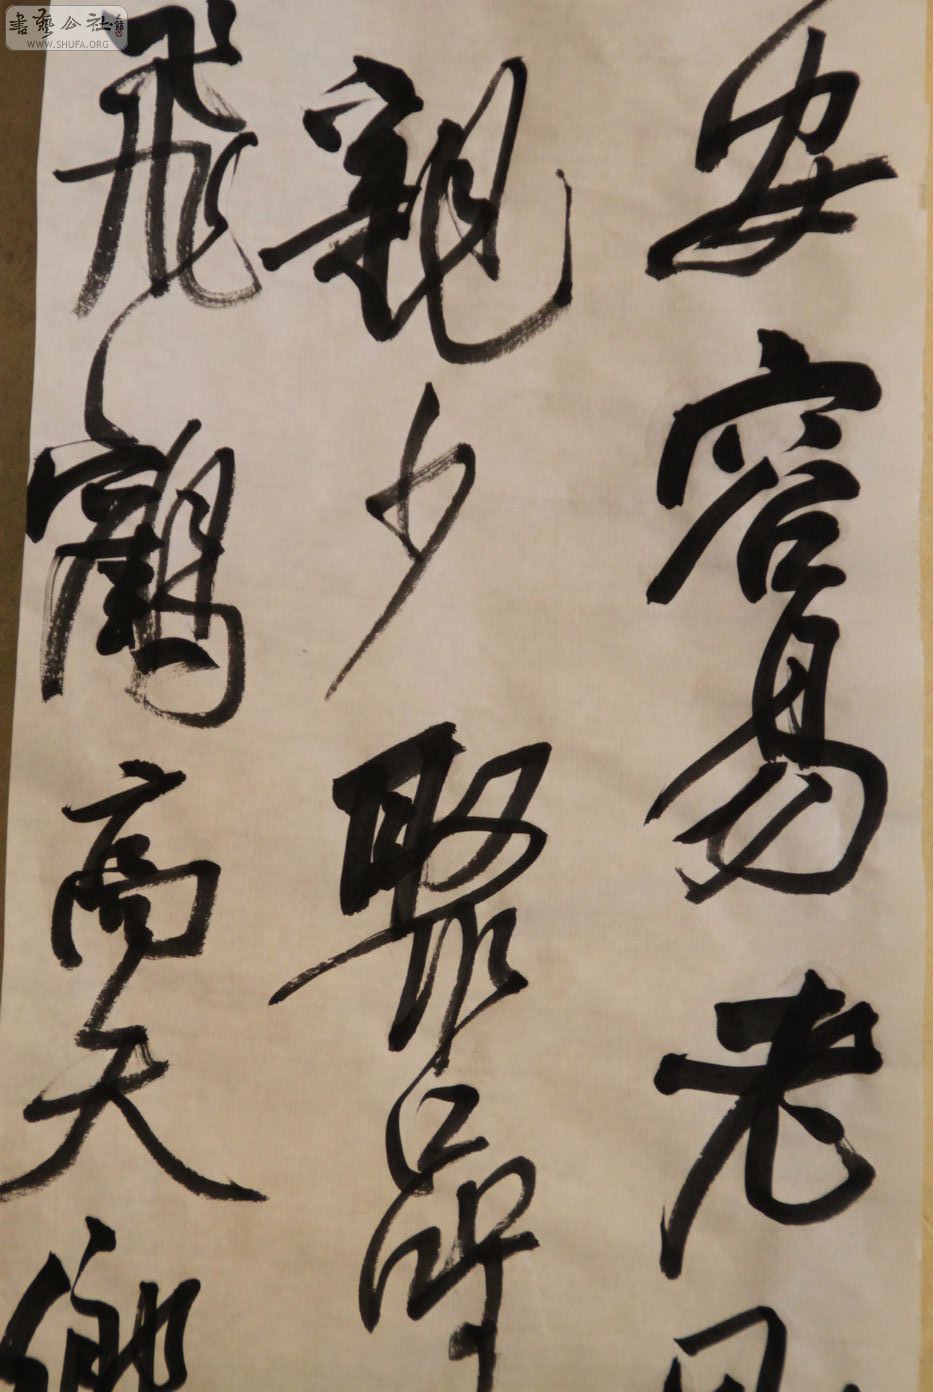 安容易老
親少聚
飛鶴高天鄉
書藝公社
WWW.SHUFA.ORG